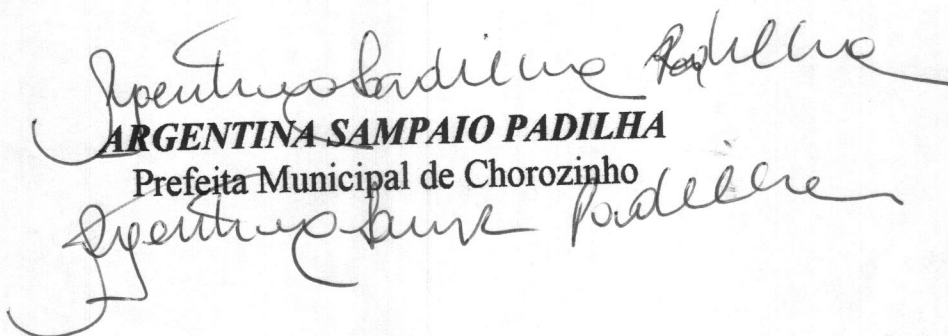 Argentina Padilha
ARGENTINA SAMPAIO PADILHA
Prefeita Municipal de Chorozinho
Argentina Padilha